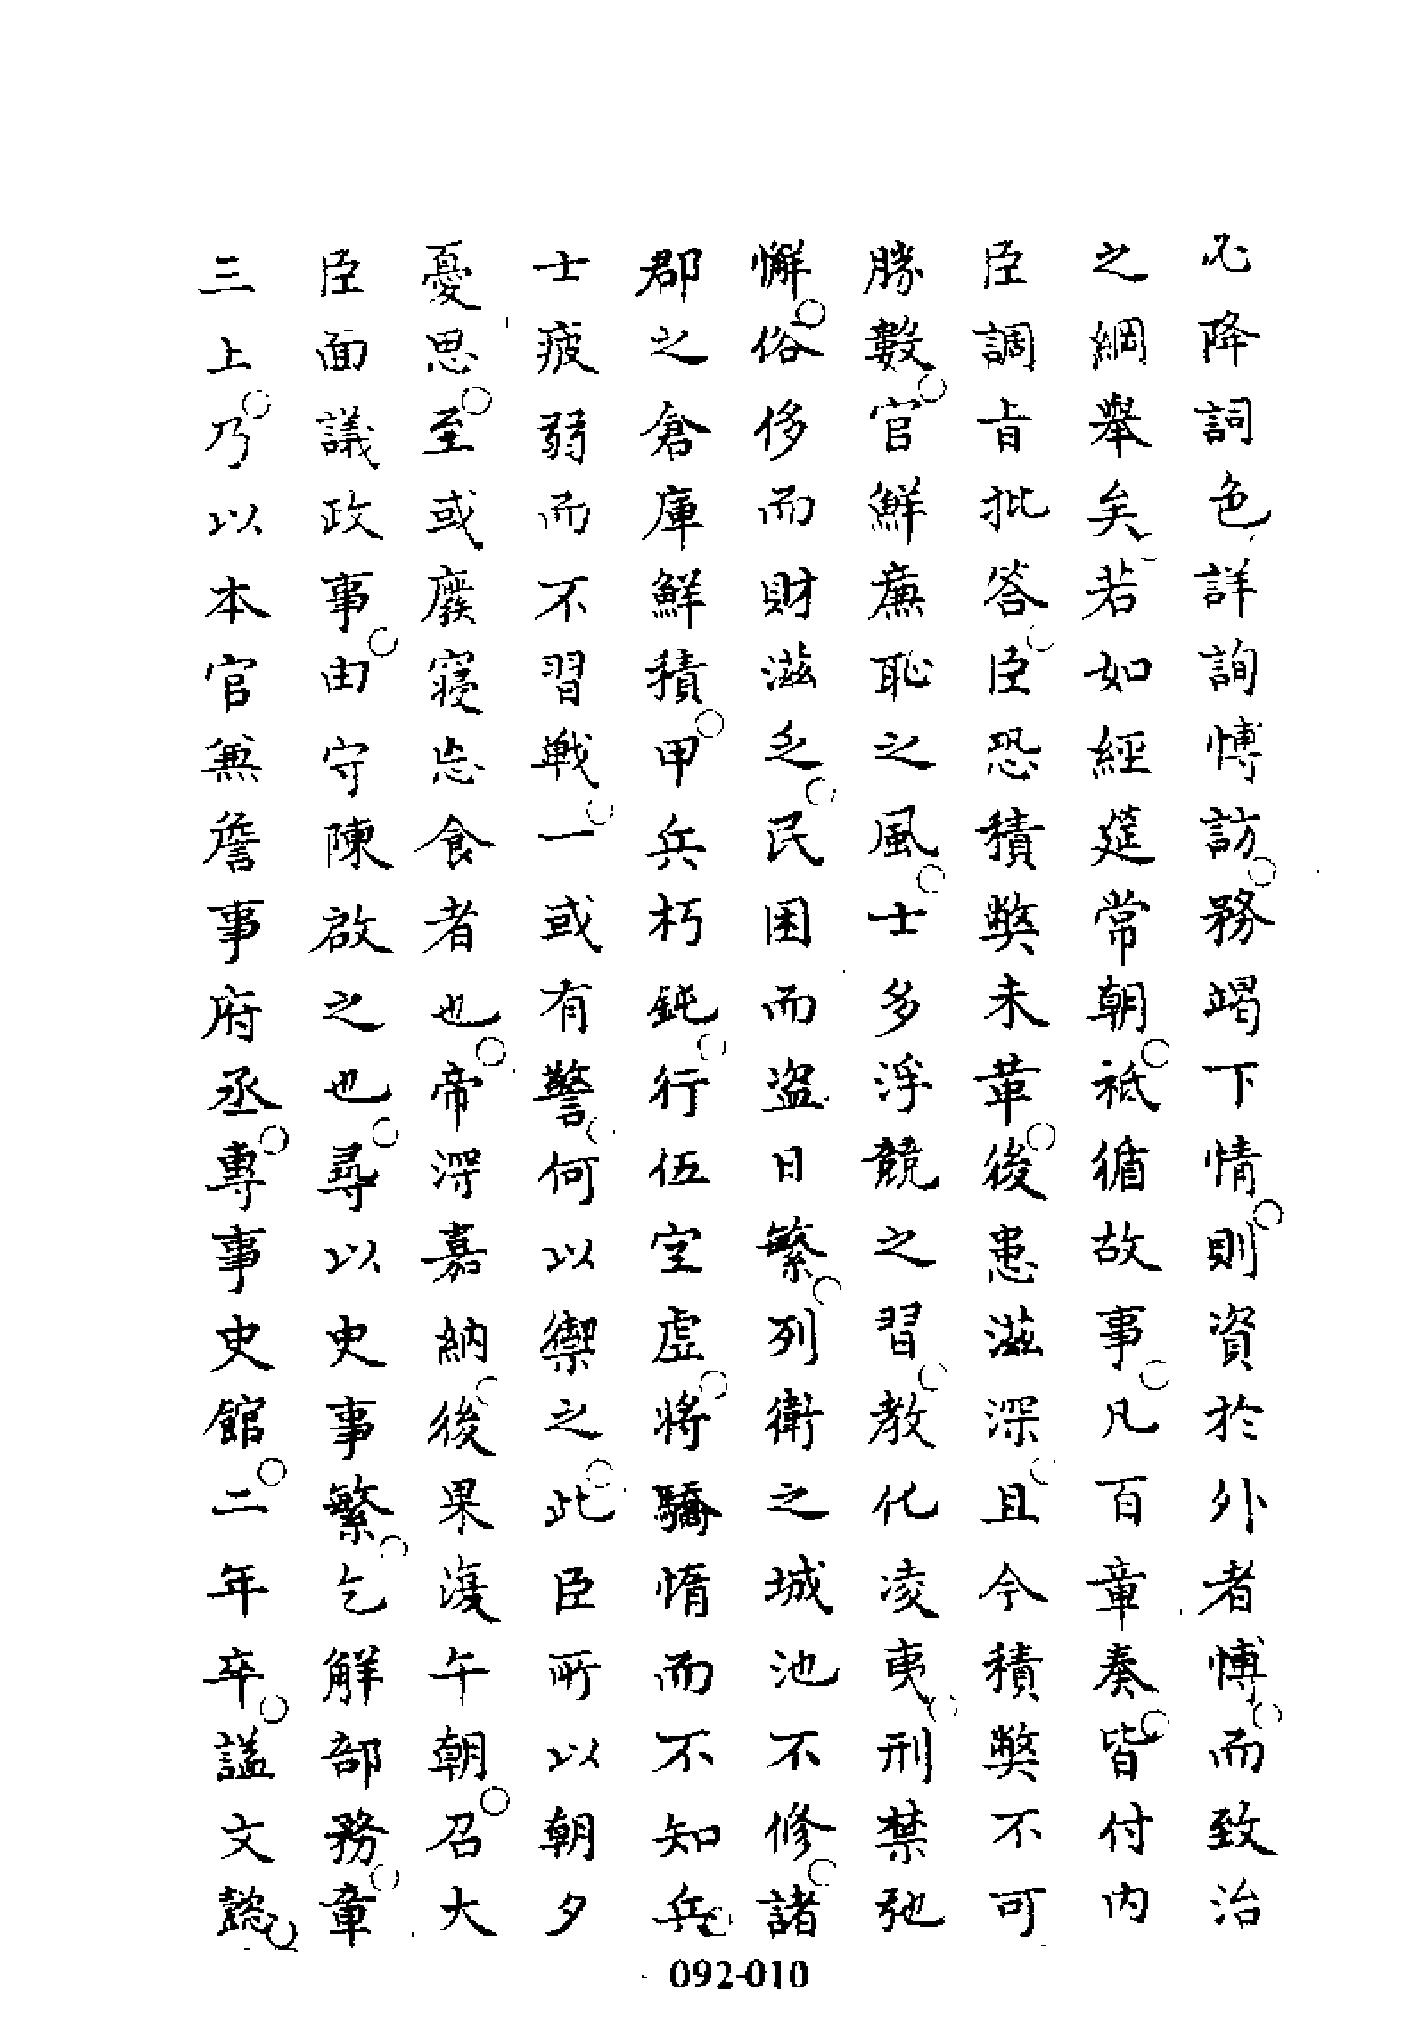 必降詞色詳詢博訪務竭下情則資於外者博而致治
之綱舉矣若如經筵常朝祗循故事凡百章奏皆付內
臣調旨批答臣恐積弊未革後患滋深且今積弊不可
勝數官鮮亷恥之風士多浮競之習教化凌夷刑禁弛
懈俗侈而財滋乏民困而盜日繁列衛之城池不修諸
郡之倉庫鮮積甲兵朽鈍行伍空虛將驕惰而不知兵
士疲弱而不習戰一或有警何以禦之此臣所以朝夕
憂思至或廢寢忘食者也帝深嘉納後果復午朝召大
臣面議政事由守陳啟之也尋以史事繁乞解部務章
三上乃以本官兼詹事府丞專事史館二年卒諡文懿
092-010